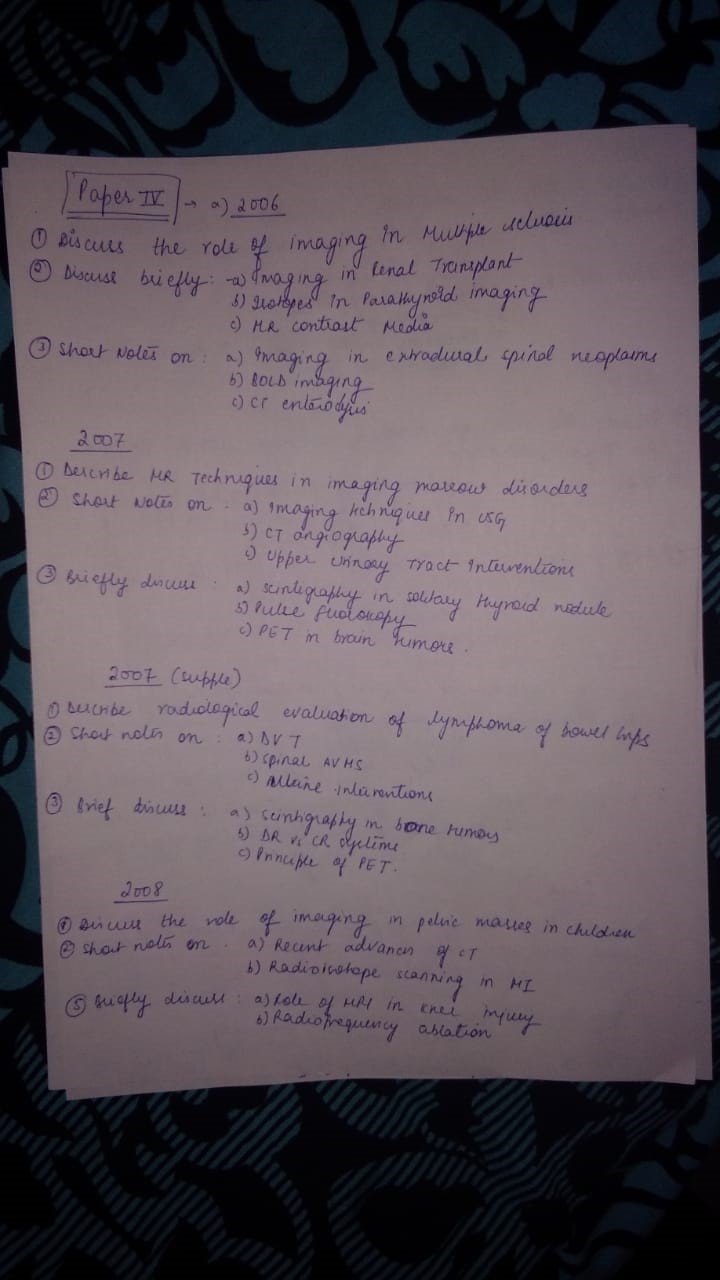 Paper IV → a) 2006
① Discuss the role of imaging in Multiple sclerosis
② Discuss briefly: -a) Imaging in Renal Transplant
b) Isotopes in Parathyroid imaging
c) MR contrast Media
③ Short Notes on : a) Imaging in extradural spinal neoplasms
b) BOLD imaging
c) CT
2007
① Describe MR Techniques in imaging marrow disorders
② Short Notes on : a) Imaging techniques in USG
b) CT angiography
c) Upper urinary Tract Interventions
③ Briefly discuss : a) scintigraphy in solitary thyroid nodule
b) Pulse fluoroscopy
c) PET in brain tumors.
2007 (supple)
① Describe radiological evaluation of lymphoma of bowel
② Short notes on : a) DVT
b) spinal AVMS
c) interventions
③ Brief discuss : a) Scintigraphy in bone tumors
b) DR vs CR systems
c) Principle of PET.
2008
① Discuss the role of imaging in pelvic masses in children
② Short notes on . a) Recent advances of CT
b) Radioisotope scanning in MI
③ Briefly discuss : a) Role of MRI in knee injury
b) Radiofrequency ablation